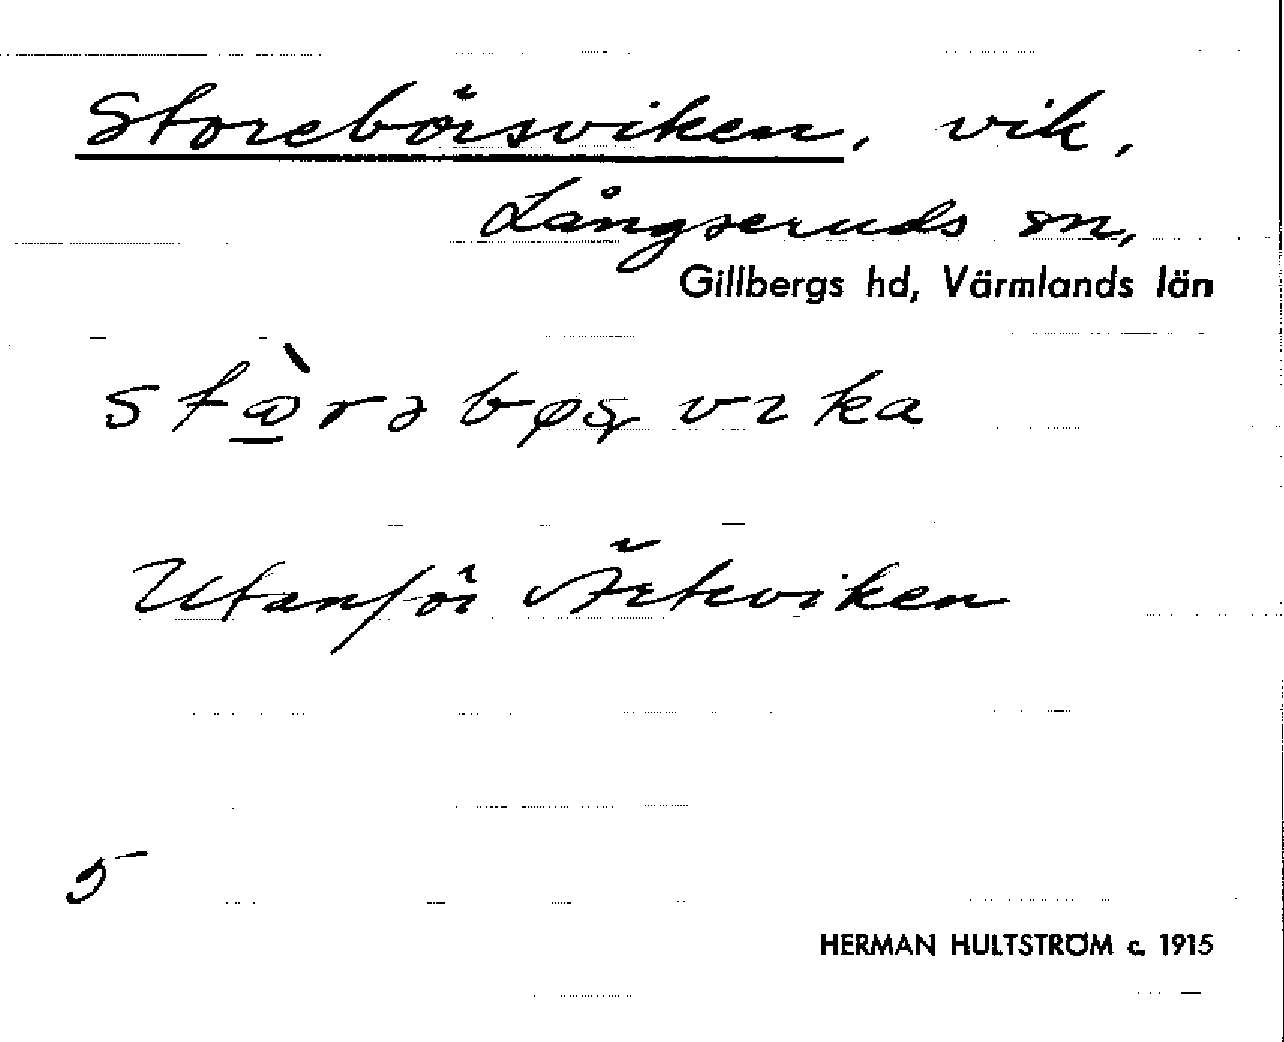 Storebörsviken, vik,
Långseruds sn,
Gillbergs hd, Värmlands län
Utanför Ärteviken
5
HERMAN HULTSTRÖM c. 1915